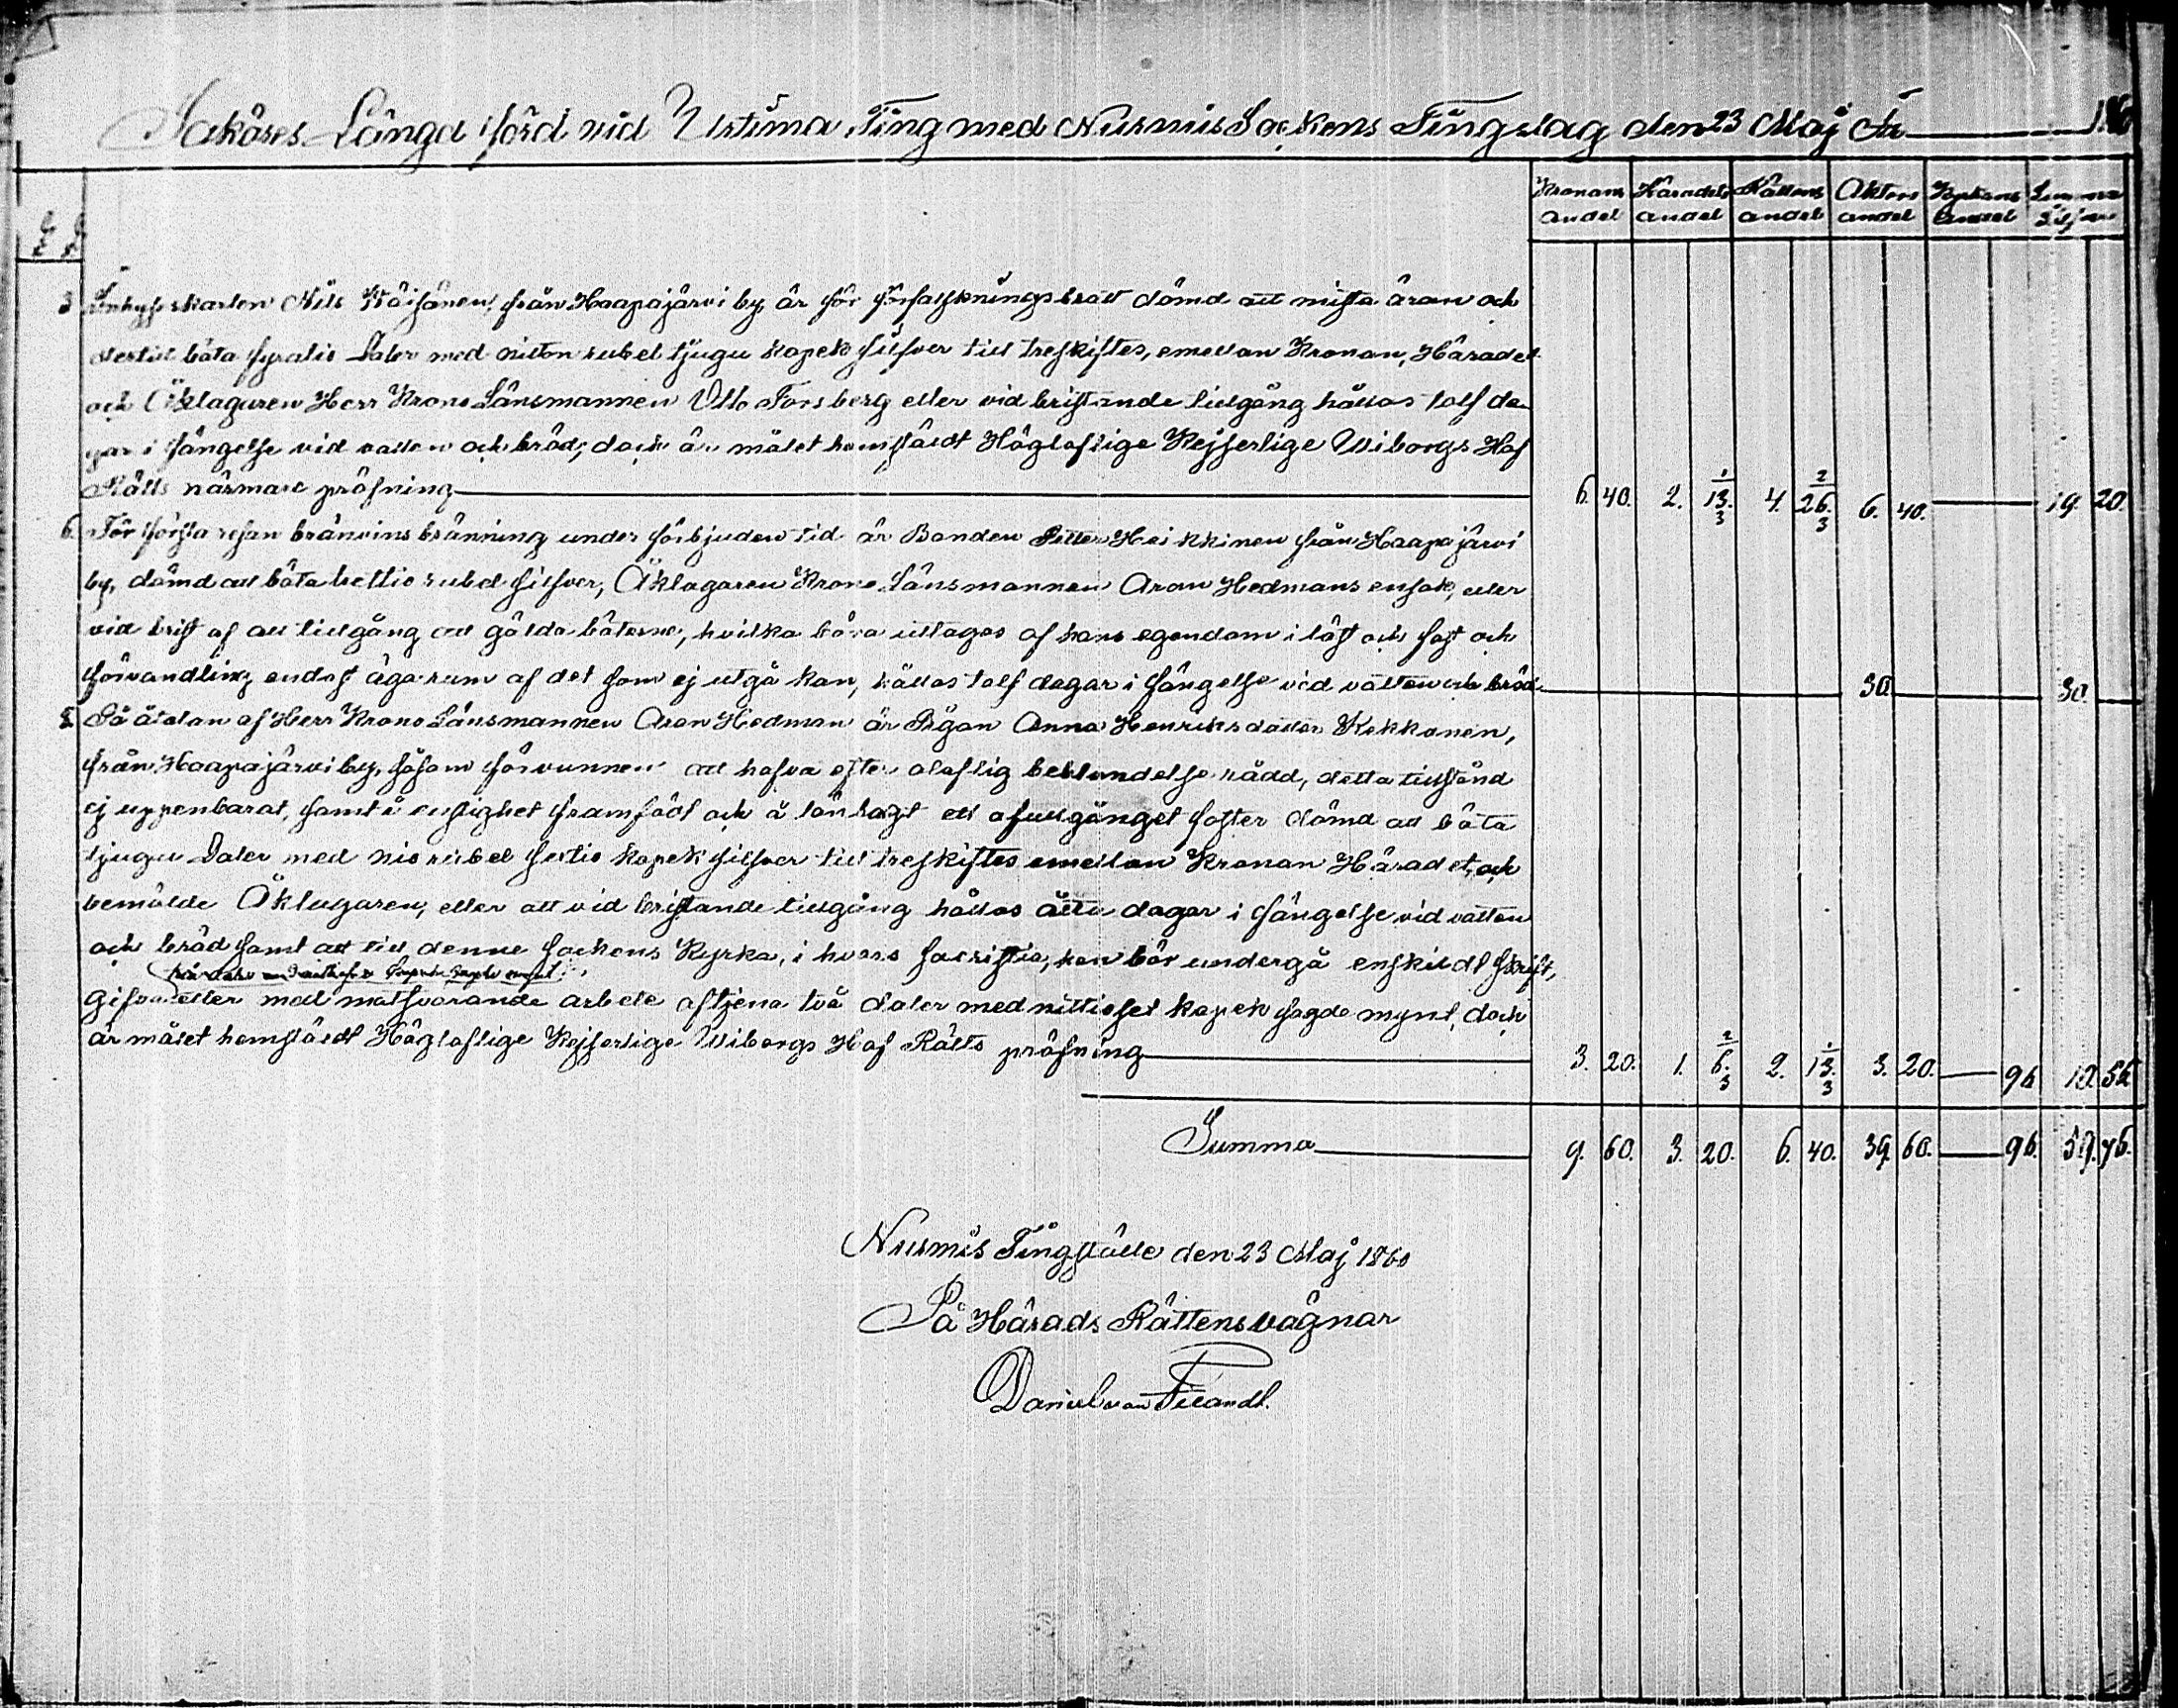 Saköres Längd förd vid Urtima Ting med Nurmis Sockens Tingslag den 23 Maj År 1860
Kronans andel Häradets andel Rättens andel Aktors andel Kyrkans andel Summa Silfver
3 Inhyseskarlen Nils Väisänen, från Haapajärvi by, är för förfalskningsbrott dömd att mista äran och
dertill böta fyratio Daler med nitton rubel tjugu kopek silfver till treskiftes, emellan Kronan, Häradet
och Åklagaren Herr Krono Länsmannen Otto Forsberg eller vid bristande tillgång hållas tolf da
gar i fängelse vid vatten och bröd; dock är målet hemstäldt Högloflige Kejserlige Wiborgs Hof
Rätts närmare pröfning 6. 40. 2. 13 1/3. 4. 26 2/3. 6. 40. 19. 20.
6. För första resan bränvins bränning under förbjuden tid är Bonden Petter Heikkinen från Haapajärvi
by, dömd att böta trettio rubel silfver, Åklagaren Krono Länsmannen Aron Hedmans ensak, eller
vid brist af all tillgång att gälda böterne, hvilka böra uttagas af hans egendom i löst och fast och
förvandling endast äga rum af det som ej utgå kan, hållas tolf dagar i fängelse vid vatten och bröd 30. 30.
8. På åtalan af Herr Krono Länsmannen Aron Hedman är Pigan Anna Henriksdotter Kekkonen,
från Haapajärvi by, såsom förvunnen att hafva efter olaflig beblandelse rådd, detta tillstånd
ej uppenbarat, samt i enslighet framfödt och å lön lagt ett ofullgånget foster dömd att böta
tjugu Daler med nio rubel sextio kopek silfver till treskiftes emellan Kronan Häradet, och
bemälde Åklagaren, eller att vid bristande tillgång hållas åtta dagar i fängelse vid vatten
och bröd samt att till denne sockens Kyrka, i hvars sacristia, hon bör undergå enskildt skrift,
gifva eller med motsvarande arbete aftjena två daler med nittiosex kopek sagde mynt, dock
är målet hemstäldt Högloflige Kejserlige Wiborgs Hof Rätts pröfning 3. 20. 1. 6 2/3. 2. 13 1/3. 3. 20. 96 10. 56
Summa 9. 60. 3. 20. 6. 40. 39. 60. 96. 59. 76.
Nurmis Tingställe den 23 Maj 1860
På Härads Rättens vägnar
Daniel von Fieandt.